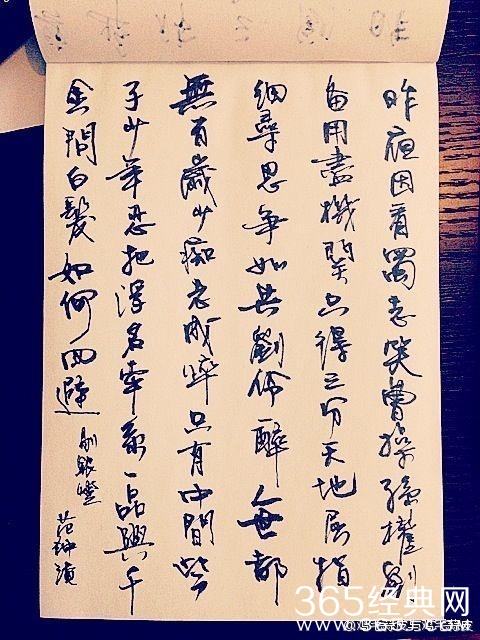 昨夜因看蜀志笑曹操孫權劉
备用盡機関只得三分天地屈指
細尋思争如共劉伶醉人世都
無百歲少痴老成悴只有中間些
子少年忍把浮名牽系一品與千
金問白髮如何回避 剔銀燈 范仲淹
365经典网